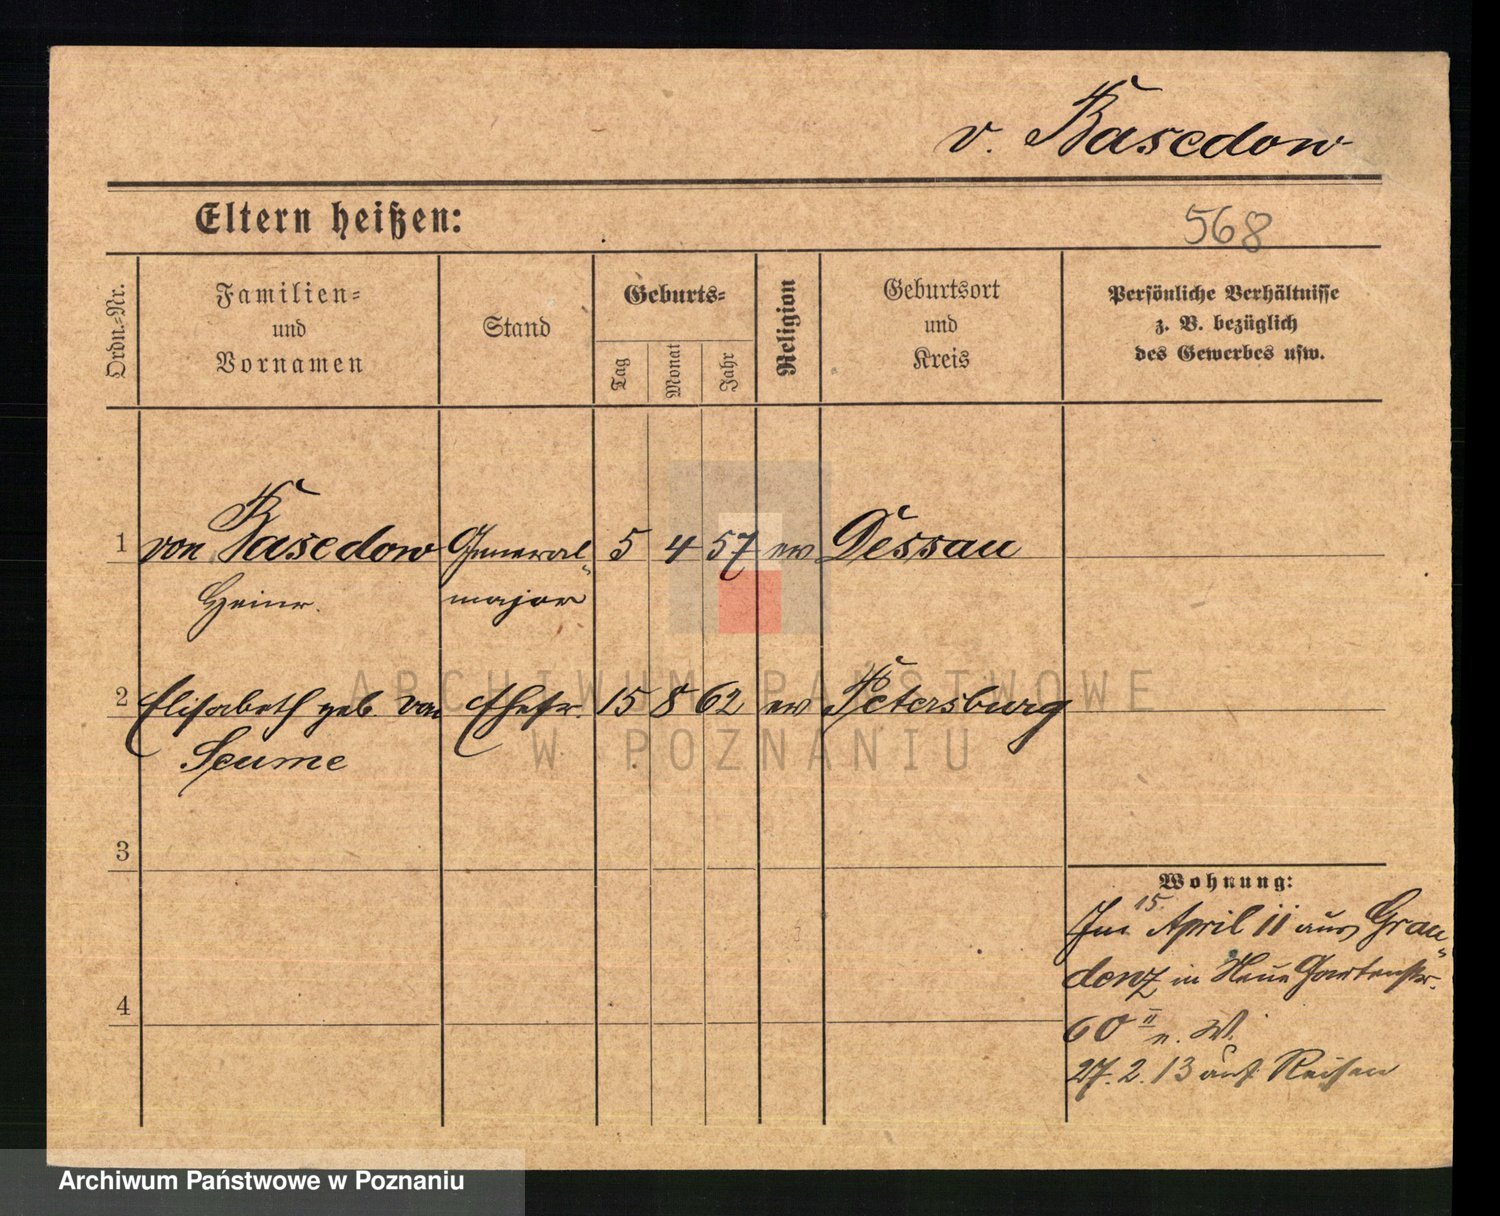 v. Basedow
Eltern heißen:
568
Ordn.-Nr.
Familien-
und
Vornamen
Stand
Geburts-
Tag
Monat
Jahr
Religion
Geburtsort
und
Kreis
Persönliche Verhältnisse
z. B. bezüglich
des Gewerbes usw.
1 von Basedow General- 5 4 57 ev Dessau
Heinr. major
2 Elisabeth geb. von Ehefr. 15 8 62 ev Petersburg
Seume
3
4
Wohnung:
Im 15. April 11 aus Grau-
denz in Neue Gartenstr.
60 II n. W.
27. 2. 13 auf Reisen
ARCHIWUM PAŃSTWOWE
W POZNANIU
Archiwum Państwowe w Poznaniu